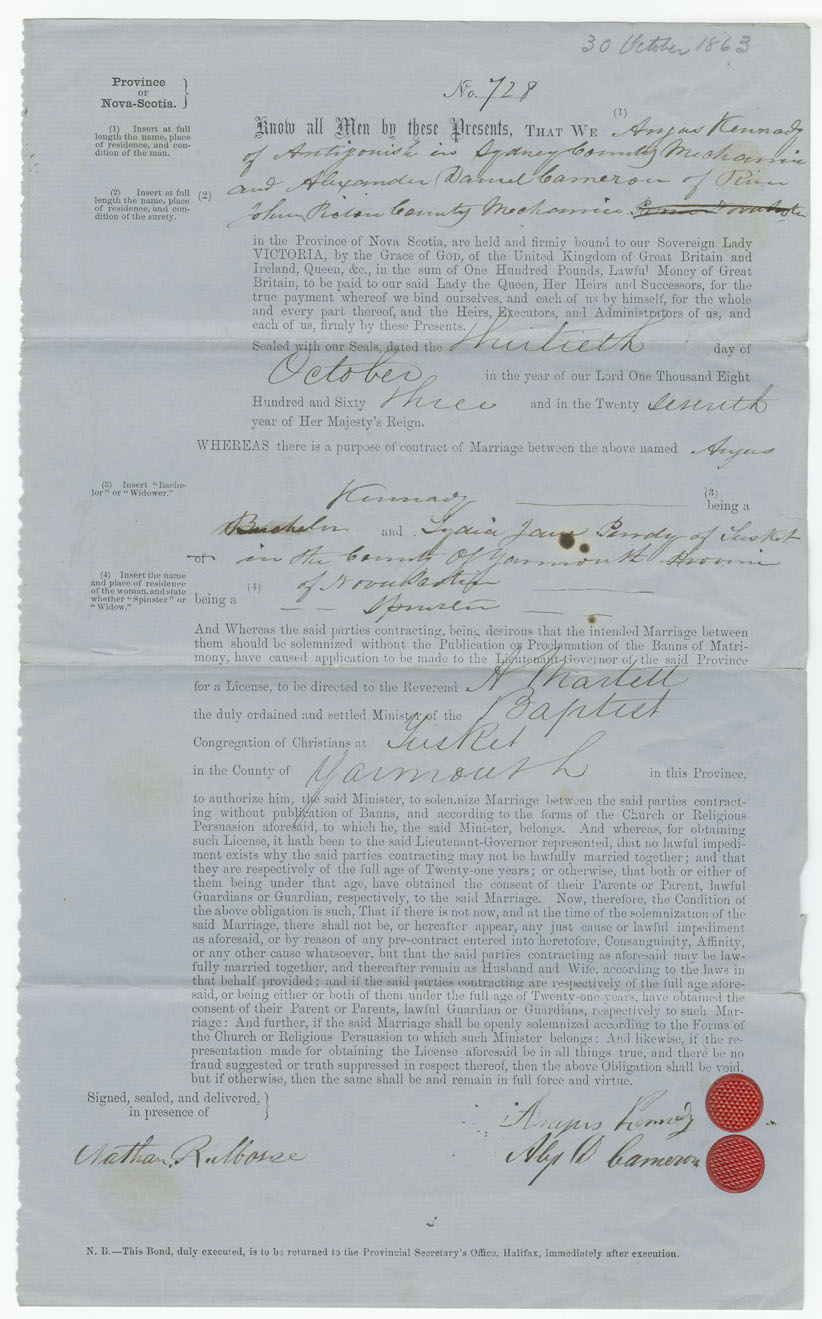 30 October 1863
Province
OF
Nova-Scotia.
No. 728
(1) Insert at full
length the name, place
of residence, and con-
dition of the man.
(1)
Know all Men by these Presents, THAT WE Angus Kennady
of Antigonish in Sydney County Mechanic
(2) Insert at full
length the name, place
of residence, and con-
dition of the surety.
(2)
and Alexander Daniel Cameron of River
John Pictou County Mechanic
in the Province of Nova Scotia, are held and firmly bound to our Sovereign Lady
VICTORIA, by the Grace of GOD, of the United Kingdom of Great Britain and
Ireland, Queen, &c., in the sum of One Hundred Pounds, Lawful Money of Great
Britain, to be paid to our said Lady the Queen, Her Heirs and Successors, for the
true payment whereof we bind ourselves, and each of us by himself, for the whole
and every part thereof, and the Heirs, Executors, and Administrators of us, and
each of us, firmly by these Presents.
Sealed with our Seals, dated the Thirtieth day of
October in the year of our Lord One Thousand Eight
Hundred and Sixty three and in the Twenty seventh
year of Her Majesty's Reign.
WHEREAS there is a purpose of contract of Marriage between the above named Angus
(3) Insert "Bache-
lor" or "Widower."
Kennady (3) being a
Bachelor and Lydia Jane Purdy of Tusket
of in the County Of Yarmouth Province
(4) Insert the name
and place of residence
of the woman, and state
whether "Spinster" or
"Widow."
(4) of Nova Scotia
being a Spinster
And Whereas the said parties contracting, being desirous that the intended Marriage between
them should be solemnized without the Publication or Proclamation of the Banns of Matri-
mony, have caused application to be made to the Lieutenant-Governor of the said Province
for a License, to be directed to the Reverend A Martell
the duly ordained and settled Minister of the Baptist
Congregation of Christians at Tusket
in the County of Yarmouth in this Province,
to authorize him, the said Minister, to solemnize Marriage between the said parties contract-
ing without publication of Banns, and according to the forms of the Church or Religious
Persuasion aforesaid, to which he, the said Minister, belongs. And whereas, for obtaining
such License, it hath been to the said Lieutenant-Governor represented, that no lawful impedi-
ment exists why the said parties contracting may not be lawfully married together; and that
they are respectively of the full age of Twenty-one years; or otherwise, that both or either of
them being under that age, have obtained the consent of their Parents or Parent, lawful
Guardians or Guardian, respectively, to the said Marriage. Now, therefore, the Condition of
the above obligation is such, That if there is not now, and at the time of the solemnization of the
said Marriage, there shall not be, or hereafter appear, any just cause or lawful impediment
as aforesaid, or by reason of any pre-contract entered into heretofore, Consanguinity, Affinity,
or any other cause whatsoever, but that the said parties contracting as aforesaid may be law-
fully married together, and thereafter remain as Husband and Wife, according to the laws in
that behalf provided; and if the said parties contracting are respectively of the full age afore-
said, or being either or both of them under the full age of Twenty-one years, have obtained the
consent of their Parent or Parents, lawful Guardian or Guardians, respectively to such Mar-
riage: And further, if the said Marriage shall be openly solemnized according to the Forms of
the Church or Religious Persuasion to which such Minister belongs: And likewise, if the re-
presentation made for obtaining the License aforesaid be in all things true, and there be no
fraud suggested or truth suppressed in respect thereof, then the above Obligation shall be void,
but if otherwise, then the same shall be and remain in full force and virtue.
Signed, sealed, and delivered,
in presence of
Angus Kennedy
Nathan. R. Morse
Alex D Cameron
N. B.—This Bond, duly executed, is to be returned to the Provincial Secretary's Office, Halifax, immediately after execution.